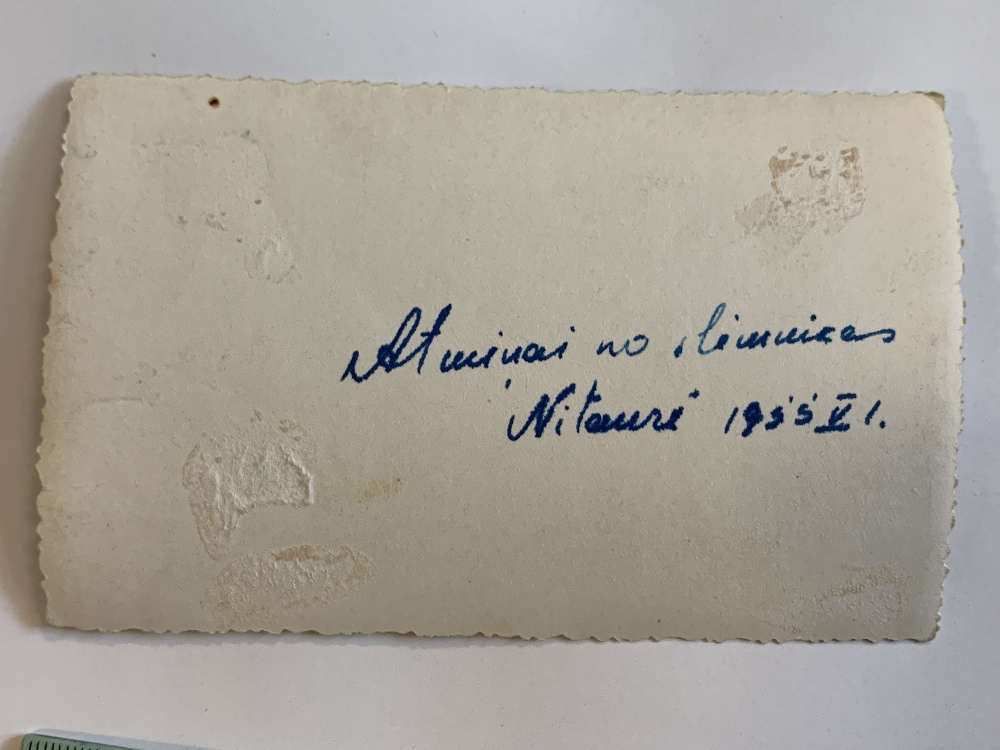 Atminai no slimnicas
Nitaurē 1955 V 1.